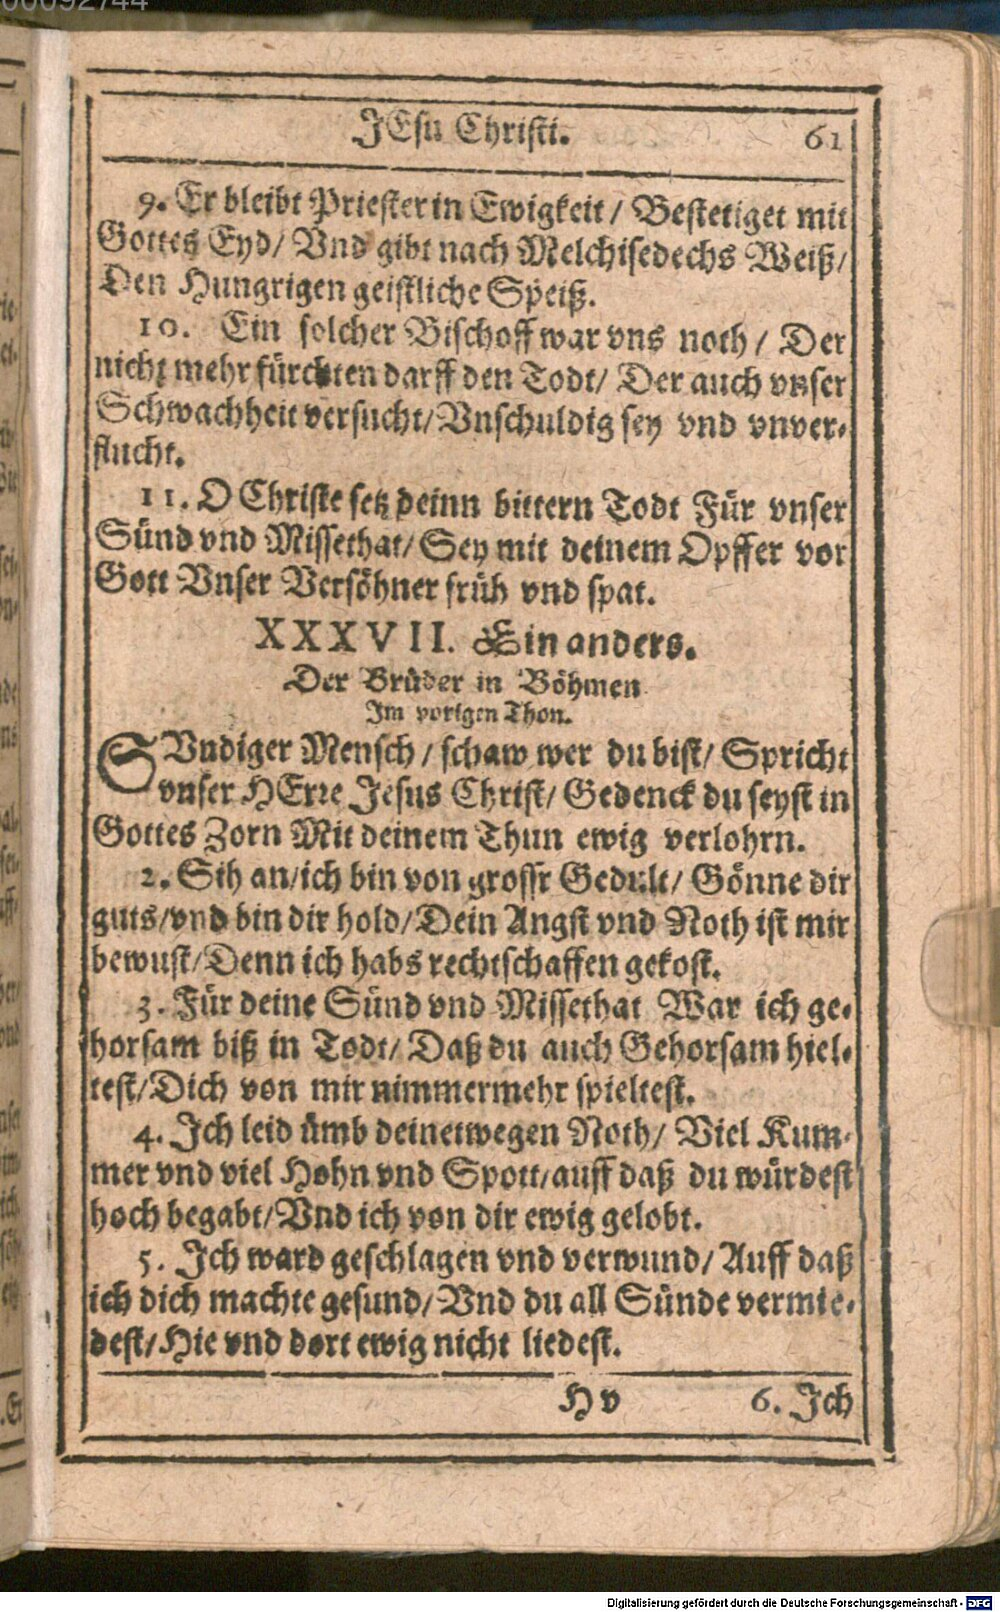 00092744
JEsu Christi. 61
9. Er bleibt Priester in Ewigkeit / Bestetiget mit
Gottes Eyd / Vnd gibt nach Melchisedechs Weiß /
Den Hungrigen geistliche Speiß.
10. Ein solcher Bischoff war vns noth / Der
nicht mehr fürchten darff den Todt / Der auch vnser
Schwachheit versucht / Vnschuldig sey vnd vnver-
flucht.
11. O Christe setz deinn bittern Todt Für vnser
Sünd vnd Missethat / Sey mit deinem Opffer vor
Gott Vnser Versöhner früh vnd spat.
XXXVII. Ein anders.
Der Brüder in Böhmen
Im vorigen Thon.
SVndiger Mensch / schaw wer du bist / Spricht
vnser HErre Jesus Christ / Gedenck du seyst in
Gottes Zorn Mit deinem Thun ewig verlohrn.
2. Sih an / ich bin von grossr Gedult / Gönne dir
guts / vnd bin dir hold / Dein Angst vnd Noth ist mir
bewust / Denn ich habs rechtschaffen gekost.
3. Für deine Sünd vnd Missethat War ich ge-
horsam biß in Todt / Daß du auch Gehorsam hiel-
test / Dich von mir nimmermehr spieltest.
4. Ich leid ümb deinetwegen Noth / Viel Kum-
mer vnd viel Hohn vnd Spott / auff daß du würdest
hoch begabt / Vnd ich von dir ewig gelobt.
5. Ich ward geschlagen vnd verwund / Auff daß
ich dich machte gesund / Vnd du all Sünde vermie-
dest / Hie vnd dort ewig nicht liedest.
H v 6. Ich
Digitalisierung gefördert durch die Deutsche Forschungsgemeinschaft - DFG